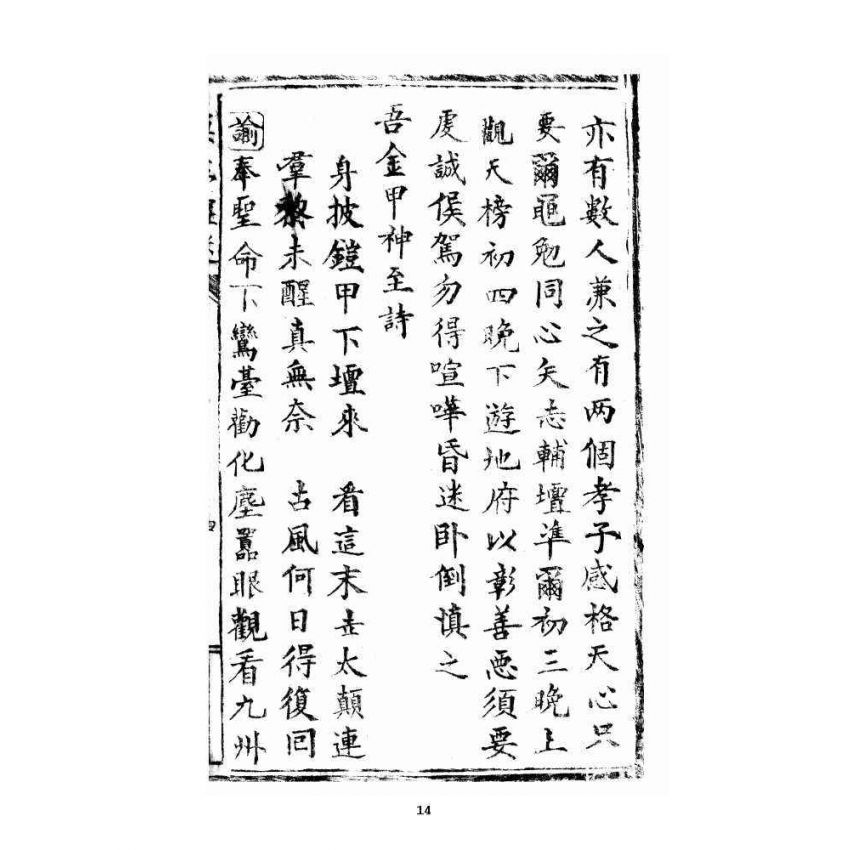 亦有數人兼之有两個孝子感格天心只
要爾黽勉同心矢志輔壇準爾初三晚上
觀天榜初四晚下遊地府以彰善惡須要
虔誠候駕勿得喧嘩昏迷卧倒慎之
吾金甲神至詩
身披鎧甲下壇來　看這末世太顛連
羣黎未醒真無奈　古風何日得復回
諭奉聖命下鸞臺勸化塵囂眼觀看九州
14